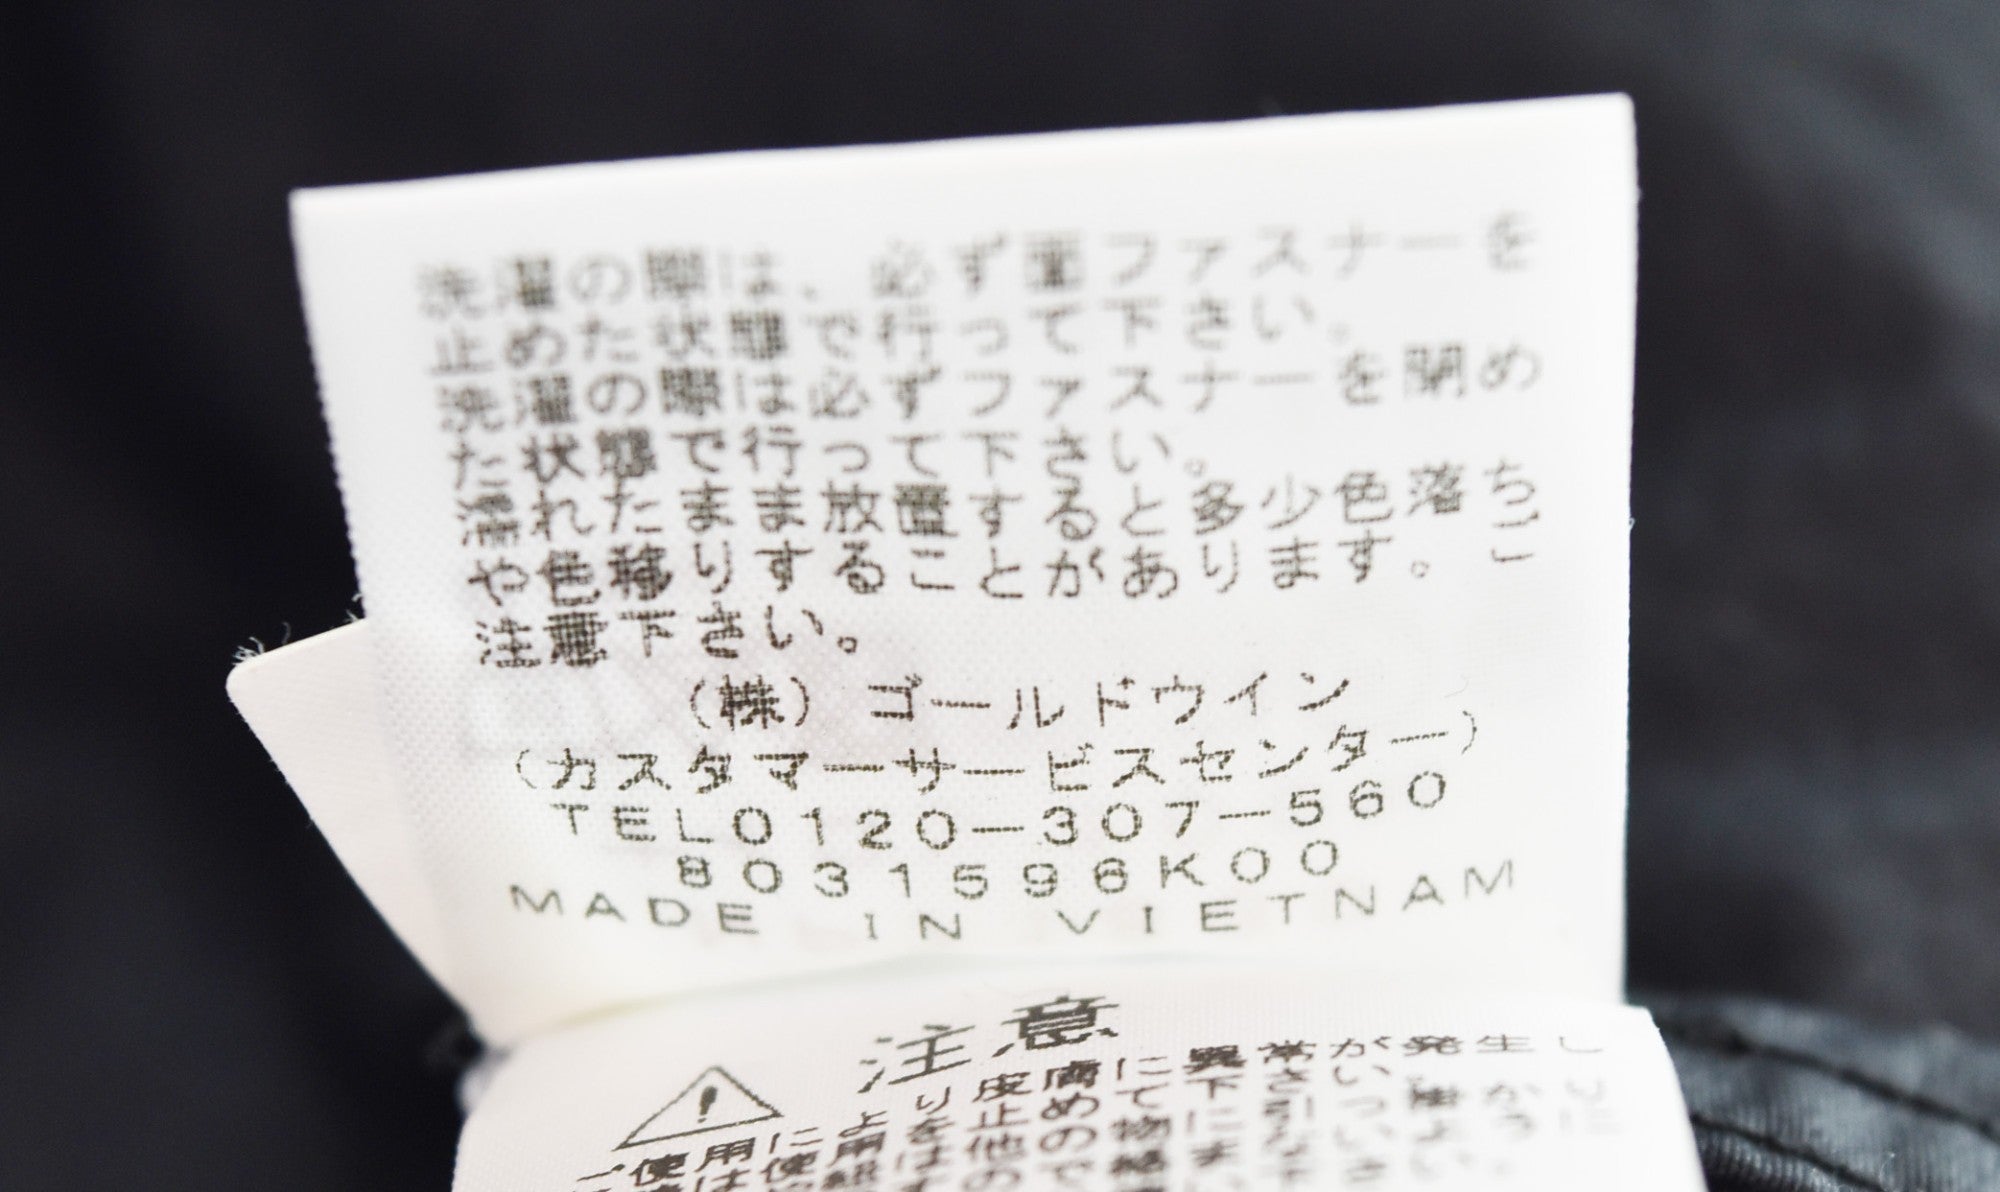 洗濯の際は、必ず面ファスナーを
止めた状態で行って下さい。
洗濯の際は必ずファスナーを閉め
た状態で行って下さい。
濡れたまま放置すると多少色落ち
や色移りする ことがあります。ご
注意下さい。
(株)ゴールドウイン
(カスタマーサービスセンター)
TEL0120-307-560
8031596K00
MADE IN VIETNAM
注意
使用により皮膚に異常が発生し